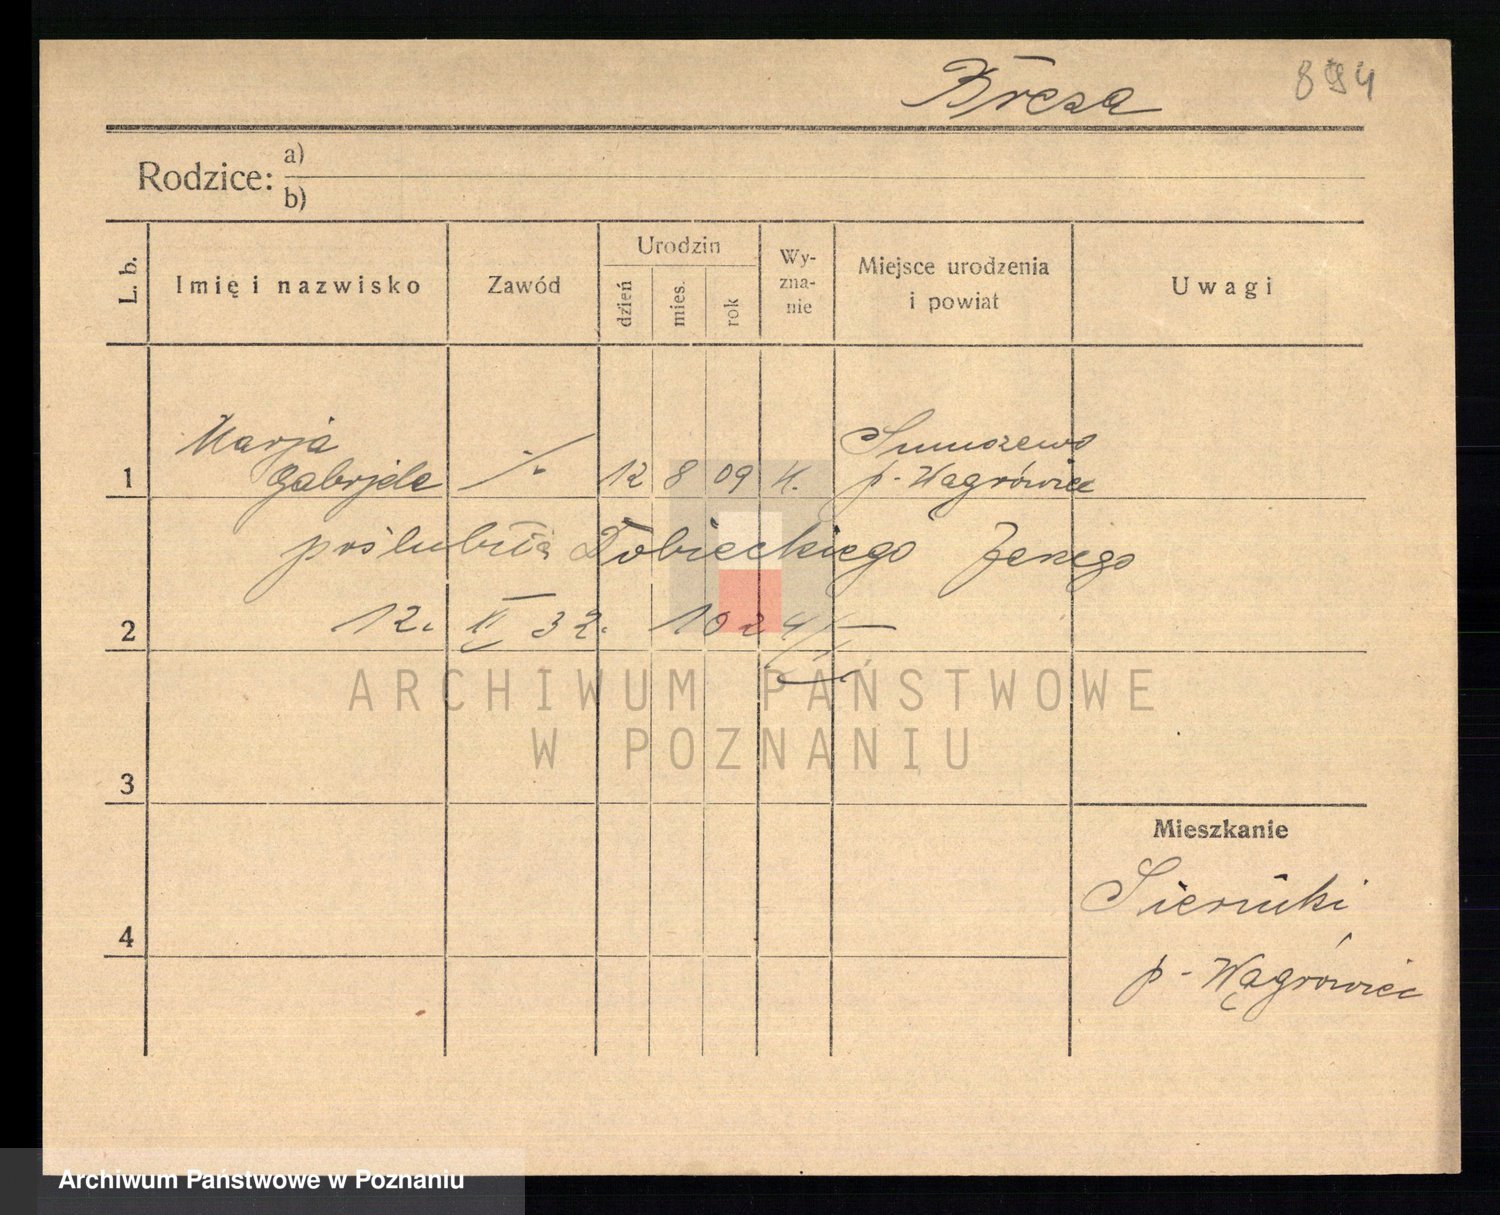 Breza 894
Rodzice: a)
b)
L. b. Imię i nazwisko Zawód Urodzin dzień mies. rok Wy-zna-nie Miejsce urodzenia i powiat Uwagi
Marja Smuszewo
1 Gabrjela /. 12 8 09 k. p. Wągrówiec
poślubiła Tobieckiego Jerzego
2 12. XI 32. 1024
3
Mieszkanie
Sierniki
4
p. Wągrówiec
ARCHIWUM PAŃSTWOWE
W POZNANIU
Archiwum Państwowe w Poznaniu